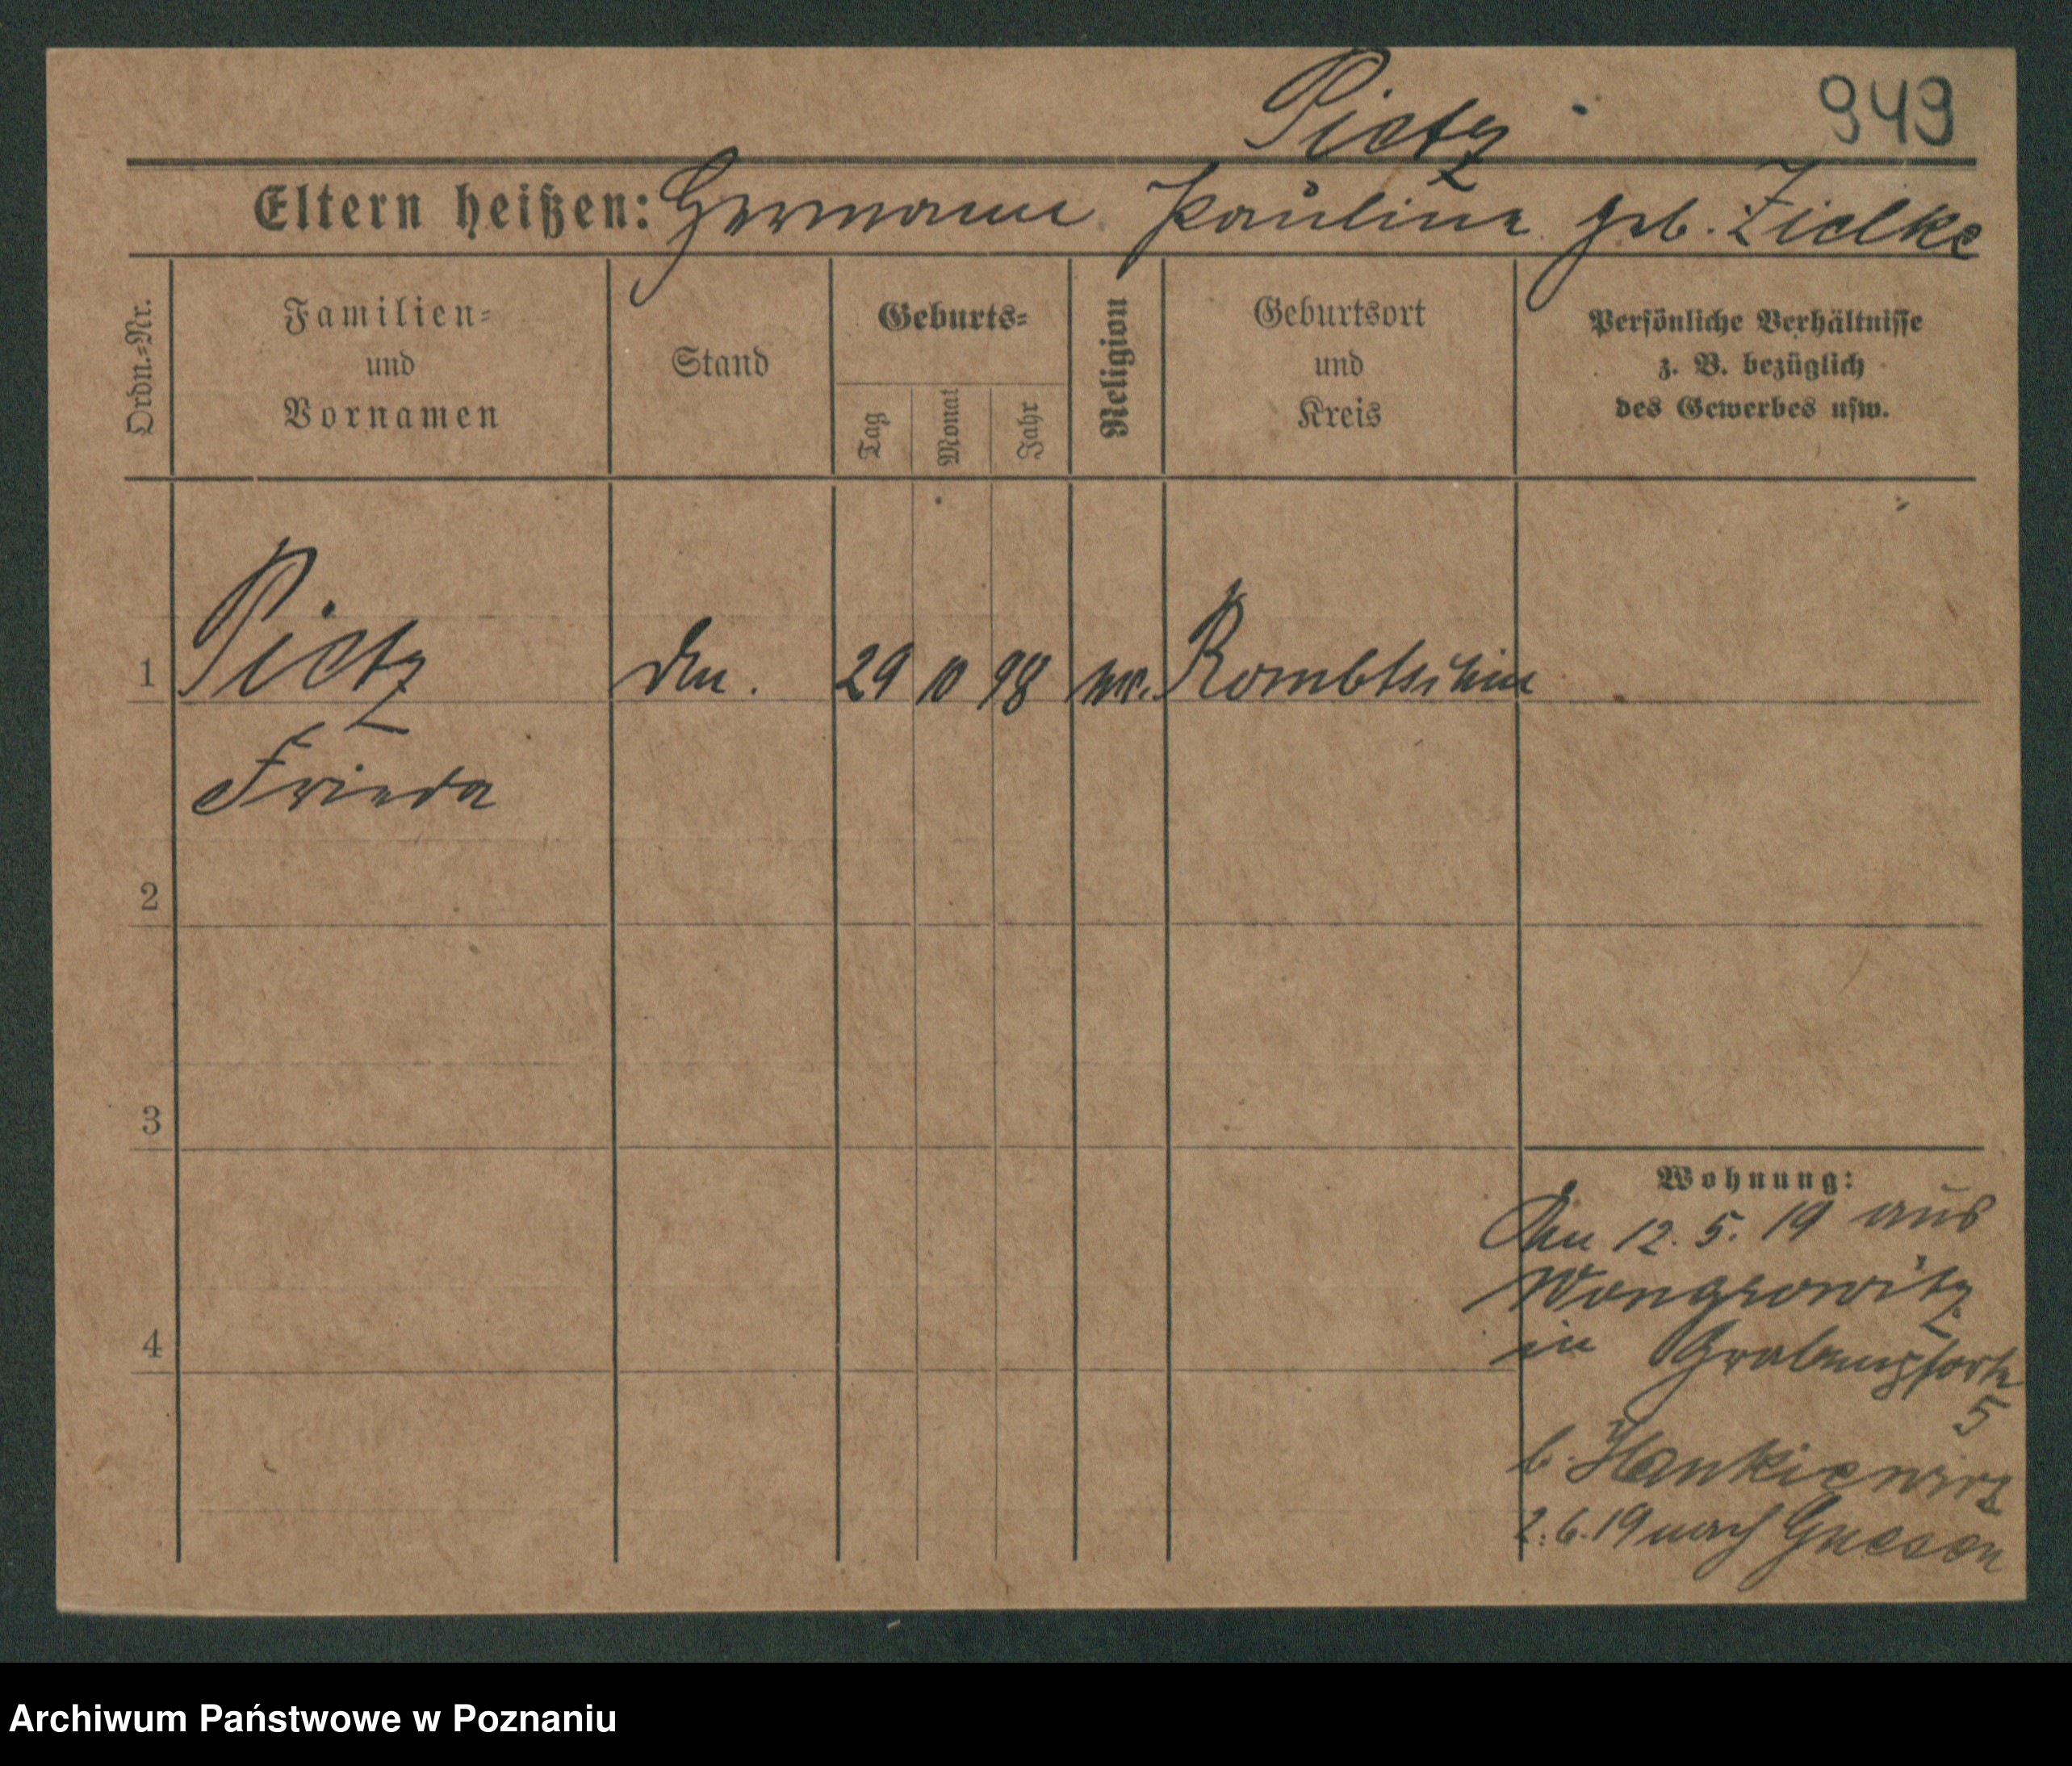 Pietz
949
Eltern heißen: Hermann Pauline geb. Zielke
Ordn.-Nr.
Familien- und Vornamen
Stand
Geburts-
Tag
Monat
Jahr
Religion
Geburtsort und Kreis
Persönliche Verhältnisse z. B. bezüglich des Gewerbes usw.
1 Pietz 29 10 98 Rombtschin
Frieda
2
3
4
Wohnung:
12. 5. 19 aus
Wongrowitz
in Grabenpforte
5
b. Hankiewicz
2. 6. 19 nach Gnesen
Archiwum Państwowe w Poznaniu